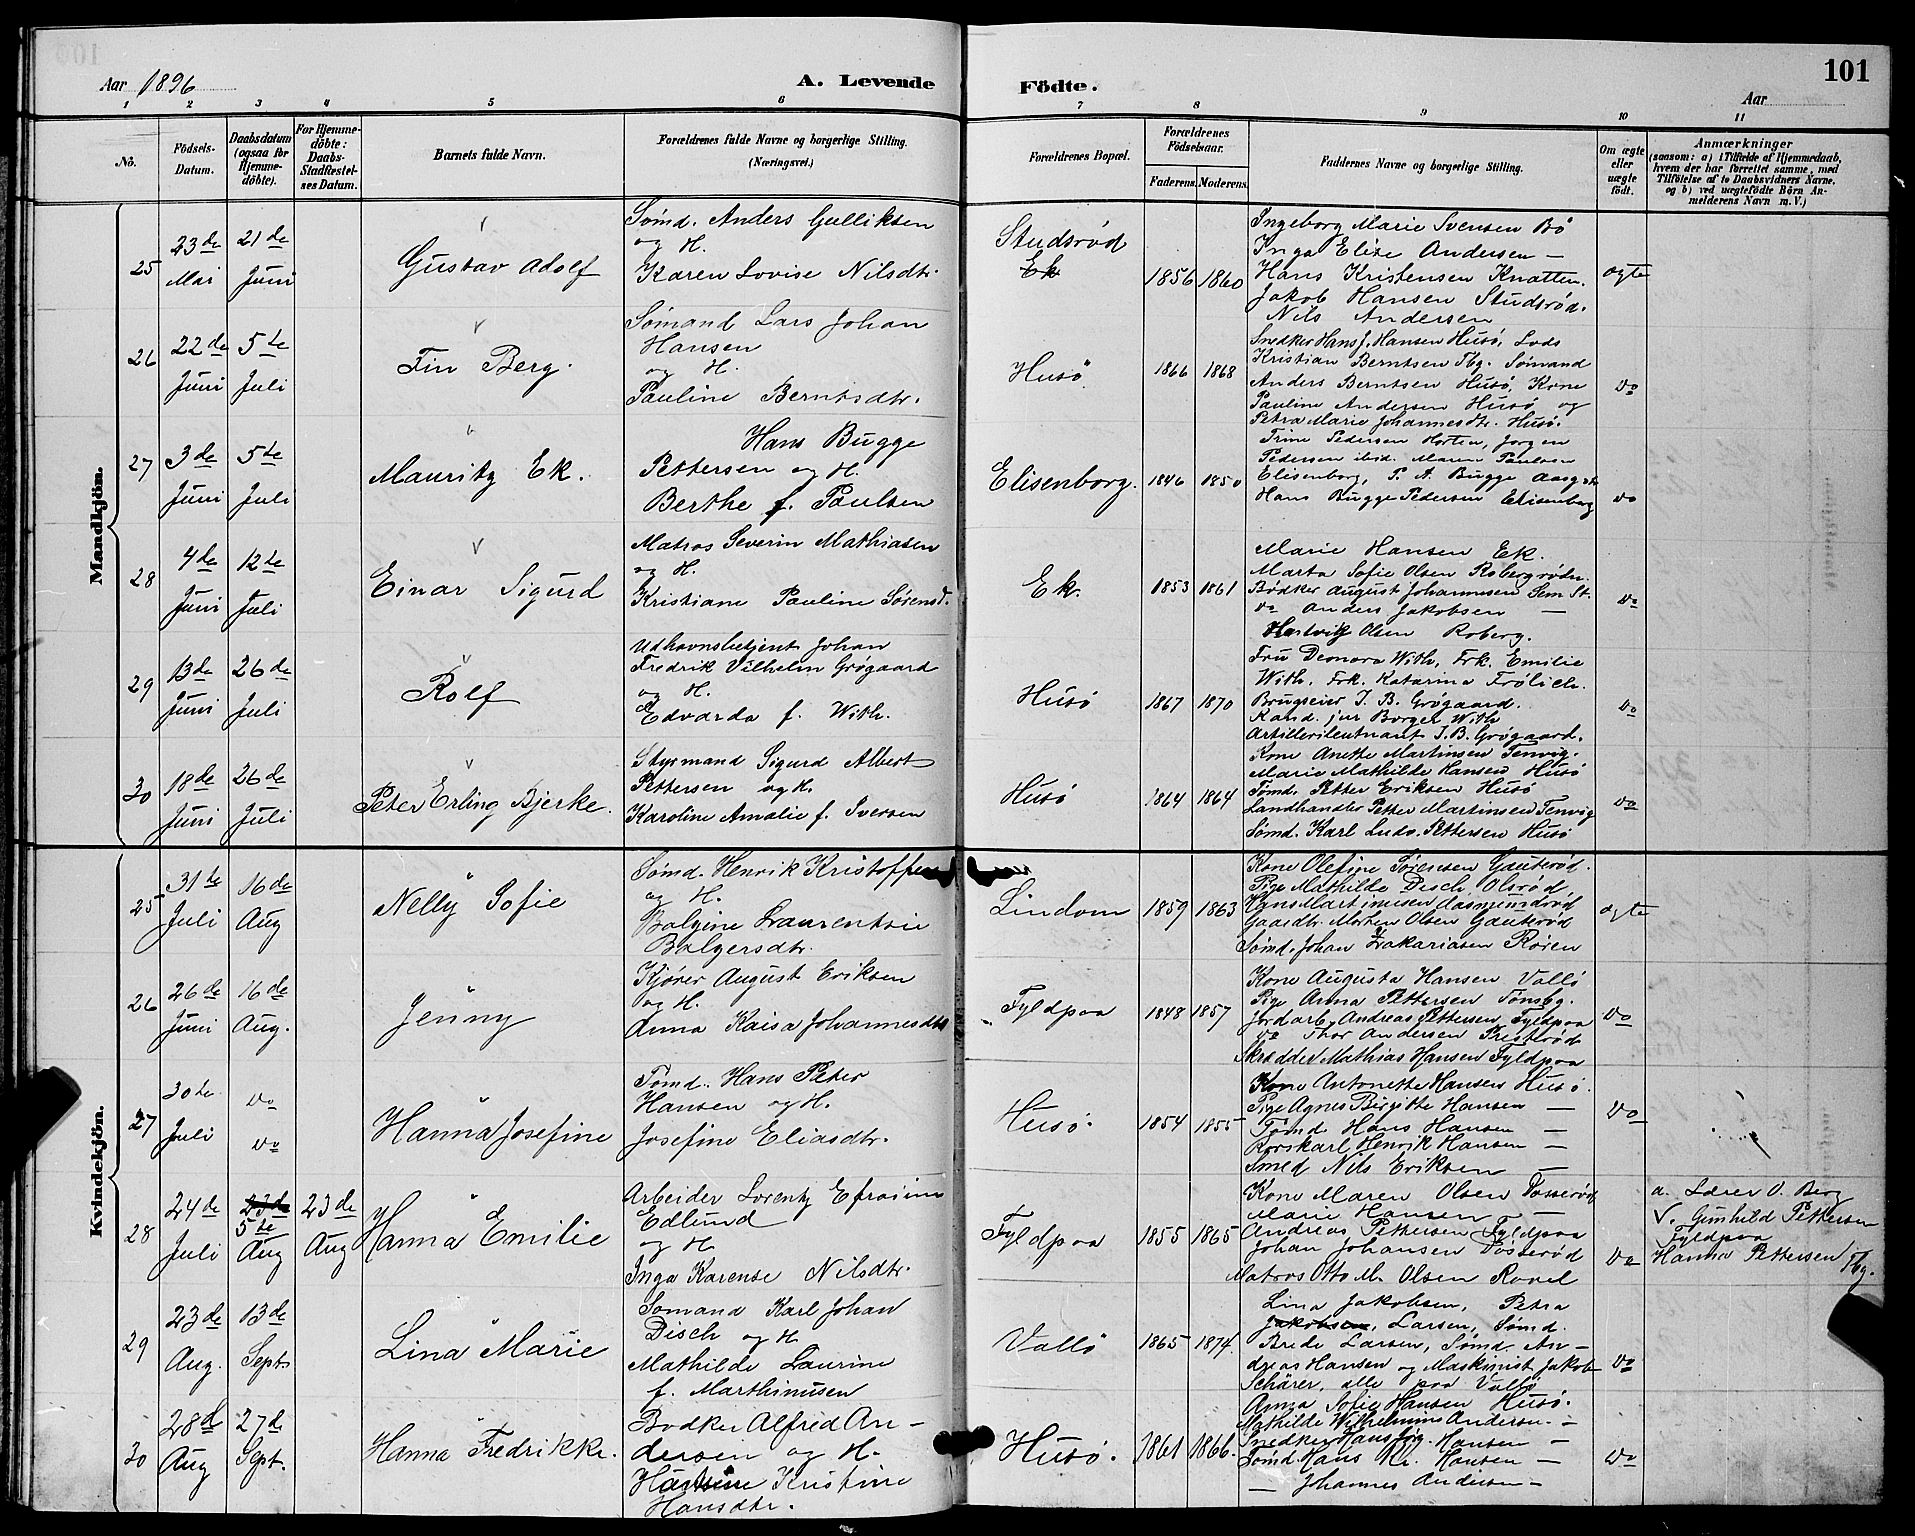 Aar 1896
A. Levende Födte.
Aar
101
1 2 3 4 5 6 7 8 9 10 11
No.
Födsels-Datum.
Daabsdatum (ogsaa for Hjemme-döbte).
For Hjemme-döbte: Daabs-Stadfæstel-ses Datum.
Barnets fulde Navn.
Forældrenes fulde Navne og borgerlige Stilling. (Næringsvei.)
Forældrenes Bopæl.
Forældrenes Födselsaar.
Faderens. Moderens.
Faddernes Navne og borgerlige Stilling.
Om ægte eller uægte födt.
Anmærkninger
(saasom: a) i Tilfælde af Hjemmedaab, hvem der har forrettet samme, med Tilföielse af to Daabsvidners Navne, og b) ved uægtefödte Börn An-melderens Navn m. V.)
Mandkjön.
25
23de Mai
21de Juni
Gustav Adolf
Sømd. Anders Gulliksen
og H.
Karen Lovise Nilsdtr.
Studsrød
Ek
1856 1860
Ingeborg Marie Svensen Bø
Inga Elise Andersen —
Hans Kristensen Knatten.
Jakob Hansen Studsrød.
Nils Andersen
ægte
26
22de Juni
5te Juli
Fin Berg.
Sømand Lars Johan
Hansen
og H.
Pauline Berntsdtr.
Husø
1866 1868
Snedker Hans J. Hansen Husø, Lods
Kristian Berntsen Tbg. Sømand
Anders Berntsen Husø, Kone
Pauline Andersen Husø og
Petra Marie Johannesdtr. Husø.
do
27
3de Juni
5te Juli
Mauritz Ek.
Hans Bugge
Pettersen og H.
Berthe f. Paulsen
Elisenborg.
1846 1850
Trine Pedersen Horten, Jørgen
Pedersen ibid. Maren Paulsen
Elisenborg, P. A. Bugge
Hans Bugge Pedersen Elisenborg
do
28
4de Juni
12te Juli
Einar Sigurd
Matros Severin Mathiasen
og H.
Kristiane Pauline Sørensd.
Ek.
1853 1861
Marie Hansen Ek.
Marta Sofie Olsen Robergrødn.
Bødker August Johannesen Sem St.
do Anders Jakobsen —
Hartvig Olsen Roberg.
do
29
13de Juni
26de Juli
Rolf
Udhavnsbetjent Johan
Fredrik Vilhelm Grøgaard
og H.
Edvarda f. With.
Husø
1867 1870
Fru Deonora With, Frk. Emilie
With, Frk. Katarina Frølich.
Brugseier I. B. Grøgaard.
Kand. jur Borger With
Artillerileutnant I. B. Grøgaard.
do
30
18de Juni
26de Juli
Peter Erling Bjerke.
Styrmand Sigurd Albert
Pettersen og H.
Karoline Amalie f. Iversen
Husø
1864 1864
Kone Anette Martinsen Tenvig.
Marie Mathilde Hansen Husø
Tømd. Petter Eriksen Husø
Landhandler Petter Martinsen Tenvig
Sømd. Karl Ludv. Pettersen Husø
do
Kvindekjön.
25
31te Juli
16de Aug
Nelly Sofie
Sømd. Henrik Kristoffersen
og H.
Bolgine Laurentsie
Bolgersdtr.
Lindom
1859 1863
Kone Olefine Sørensen Gauterød.
Pige Mathilde Disch, Olsrød,
Hans Martinusen Aasmundrød
Gaardbr. Morten Olsen Gauterød
Sømd. Johan Zakariasen Røren
ægte
26
26de Juni
16de Aug.
Jenny
Kjører August Eriksen
og H.
Anna Kaisa Johannesdtr
Fyldpaa
1848 1857
Kone Augusta Hansen Vallø
Pige Anna Pettersen Tønsbg.
Jordarb. Andreas Pettersen Fyldpaa
do Thor Andersen Presterød
Skrædder Mathias Hansen Fyldpaa
do
27
30te Juli
do do
Hanna Josefine
Tømd. Hans Peter
Hansen og H.
Josefine Eliasdtr.
Husø.
1854 1855
Kone Antonette Hansen Husø.
Pige Agnes Birgitte Hansen —
Tømd Hans Hansen —
Rorskarl Henrik Hansen —
Smed Nils Eriksen —
do
28
24de Juli
23de 5te Aug
23de Aug
Hanna Emilie
Arbeider Lorentz Efraim
Edlund
og H.
Inga Karense Nilsdtr.
Fyldpaa
1855 1865
Kone Maren Olsen Tosserød
Marie Hansen —
Andreas Pettersen Fyldpaa
Johan Johansen Tosserød
Matros Otto M. Olsen Ravel
do
a. Lærer O. Berg
V. Gunhild Pettersen
Fyldpaa
Hanna Pettersen Tbg.
29
23de Aug.
13de Sept.
Lina Marie
Sømand Karl Johan
Disch og H.
Mathilde Laurine
f. Marthinusen
Vallø
1865 1874.
Lina Jakobsen, Petra
Jakobsen, Larsen, Sømd.
Brede Larsen, Sømd. An-
dreas Hansen og Maskinist Jakob
Schärer, alle paa Vallø
do
30
28de Aug
27de Sept.
Hanna Fredrikke.
Bødker Alfred An-
dersen og H.
Kristine
Hansdtr.
Husø.
1861 1866.
Anna Sofie Hansen Husø.
Mathilde Wilhelmine Andersn. —
Snedker Hans Jørg. Hansen —
Tømd Hans Kr. Hansen —
— Johannes Andersen —
do